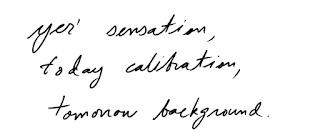 yes' sensation,
today calibration,
tomorrow background.